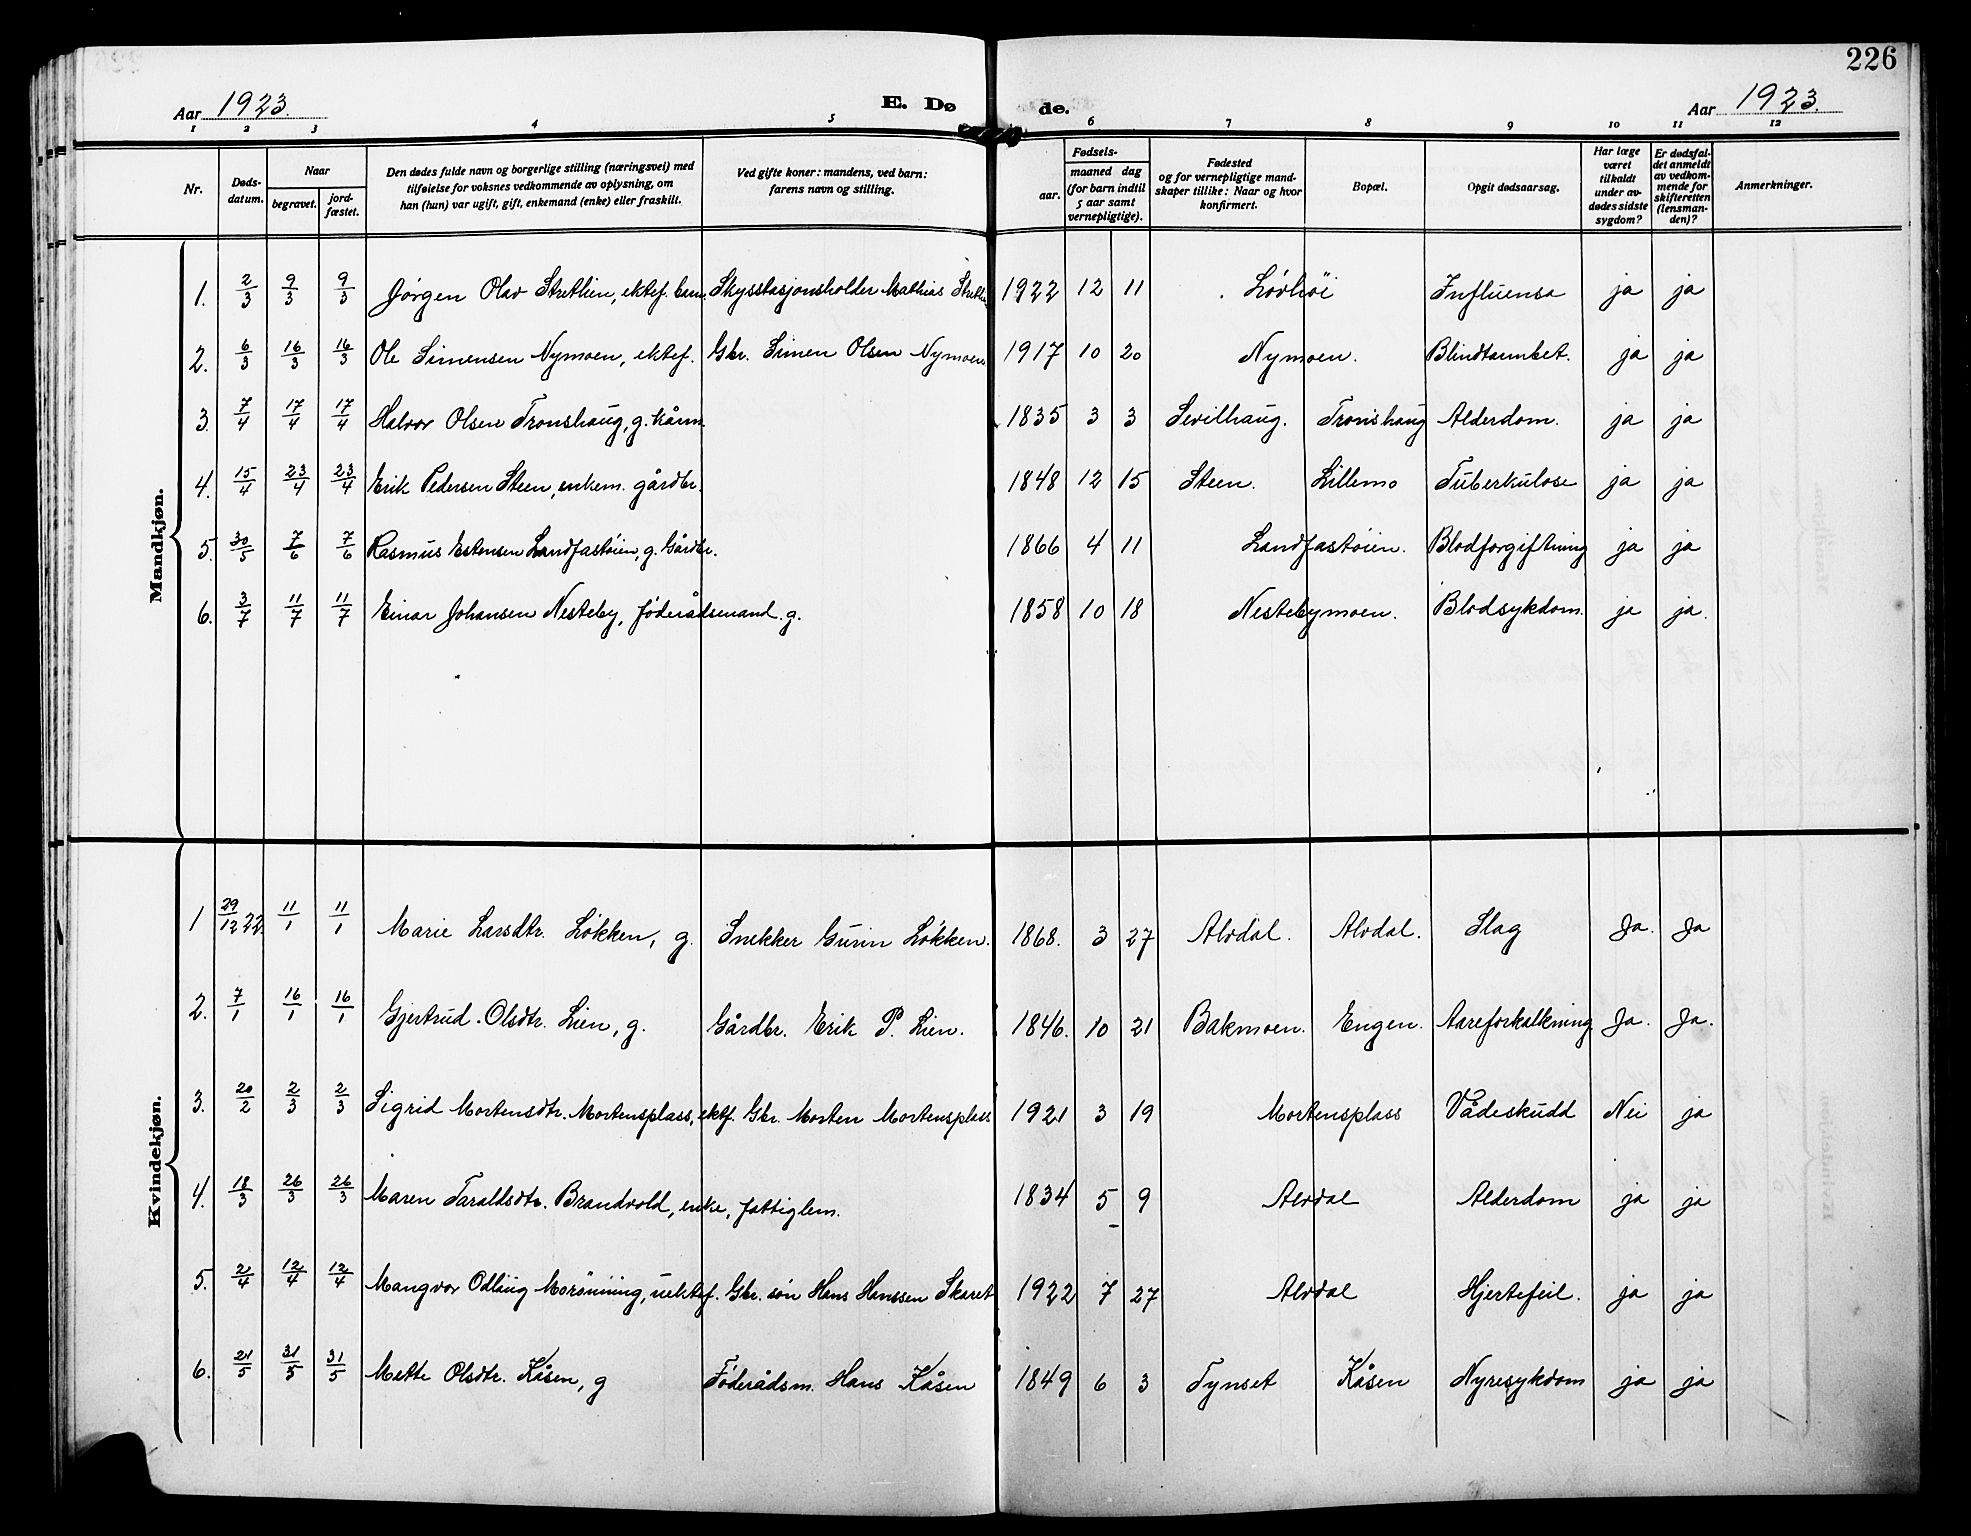 226
Aar 1923. E. Dø de. Aar 1923.
1 2 3 4 5 6 7 8 9 10 11 12
Nr. Døds-datum. Naar begravet. jord-fæstet. Den dødes fulde navn og borgerlige stilling (næringsvei) med tilføielse for voksnes vedkommende av oplysning, om han (hun) var ugift, gift, enkemand (enke) eller fraskilt. Ved gifte koner: mandens, ved barn: farens navn og stilling. Fødsels- aar. maaned dag (for barn indtil 5 aar samt vernepligtige). Fødested og for vernepligtige mand-skaper tillike: Naar og hvor konfirmert. Bopæl. Opgit dødsaarsag. Har læge været tilkaldt under av-dødes sidste sygdom? Er dødsfal-det anmeldt av vedkom-mende for skifteretten (lensman-den)? Anmerkninger.
Mandkjøn.
1. 2/3 9/3 9/3 Jørgen Olav Strethien, ektef. barn. Skysstasjonsholder Mathias 1922 12 11 Lövhöi Influensa ja ja
2. 6/3 16/3 16/3 Ole Simensen Nymoen, ektef. Gbr. Simen Olsen Nymoen 1917 10 20 Nymoen. Blindtarmbet. ja ja
3. 7/4 17/4 17/4 Halvor Olsen Tronshaug, g. kårm. 1835 3 3 Sevilhaug. Tronshaug Alderdom. ja ja
4. 15/4 23/4 23/4 Erik Pedersen Steen, enkem. gårdbr. 1848 12 15 Steen. Lillemo Tuberkulose ja ja
5. 30/5 7/6 7/6 Rasmus Estensen Landfastöien, g. Gårdbr. 1866 4 11 Landfastöien. Blodforgiftning ja ja
6. 3/7 11/7 11/7 Einar Johansen Nesteby, föderådsmand. g. 1858 10 18 Nestebymoen. Blodsykdom. ja ja.
Kvindekjøn.
1 29/12 22. 11/1 11/1 Marie Larsdtr. Løkken, g. Snekker Gurin Løkken. 1868. 3 27 Alvdal. Alvdal. Slag Ja. Ja
2. 7/1 16/1 16/1 Gjertrud Olsdtr. Lien, g. Gårdbr. Erik P. Lien. 1846. 10 21 Bakmoen. Engen. Aareforkalkning Ja. Ja.
3. 20/2 2/3 2/3 Sigrid Mortensdtr. Mortensplass, ektf. Gbr. Morten Mortensplass 1921 3 19 Mortensplass Vådeskudd Nei ja
4. 18/3 26/3 26/3 Maren Taraldsdtr. Brandvold, enke, fattiglem. 1834 5 9 Alvdal Alderdom ja ja
5. 2/4 12/4 12/4 Mangvor Odlaug Morönning, uektef. Gbr. sön Hans Hanssen Skaret 1922 7 27 Alvdal Hjertefeil. ja ja
6. 21/5 31/5 31/5 Mette Olsdtr. Kåsen, g Föderådsm. Hans Kåsen 1849 6 3 Tynset Kåsen Nyresykdom ja ja